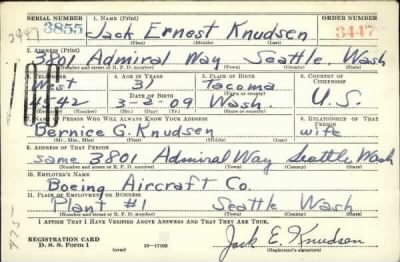 SERIAL NUMBER 1. NAME (Print) ORDER NUMBER
3855 Jack Ernest Knudsen 3447
(First) (Middle) (Last)
2. ADDRESS (Print)
3801 Admiral Way Seattle, Wash
(Number and street or R. F. D. number) (Town) (County) (State)
3. TELEPHONE 4. AGE IN YEARS 5. PLACE OF BIRTH 6. COUNTRY OF CITIZENSHIP
West 31 Tacoma
DATE OF BIRTH (Town or county)
4542 3-2-09 Wash. U.S.
7. NAME OF PERSON WHO WILL ALWAYS KNOW YOUR ADDRESS 8. RELATIONSHIP OF THAT PERSON
Bernice G. Knudsen wife
(Mr., Mrs., Miss) (First) (Middle) (Last)
9. ADDRESS OF THAT PERSON
same 3801 Admiral Way Seattle Wash
(Number and street or R. F. D. number) (Town) (County) (State)
10. EMPLOYER'S NAME
Boeing Aircraft Co.
11. PLACE OF EMPLOYMENT OR BUSINESS
Plant #1 Seattle Wash
(Number and street or R. F. D. number) (Town) (County) (State)
I AFFIRM THAT I HAVE VERIFIED ABOVE ANSWERS AND THAT THEY ARE TRUE.
REGISTRATION CARD
D. S. S. Form 1 (over) 16-17105
Jack E. Knudsen
(Registrant's signature)